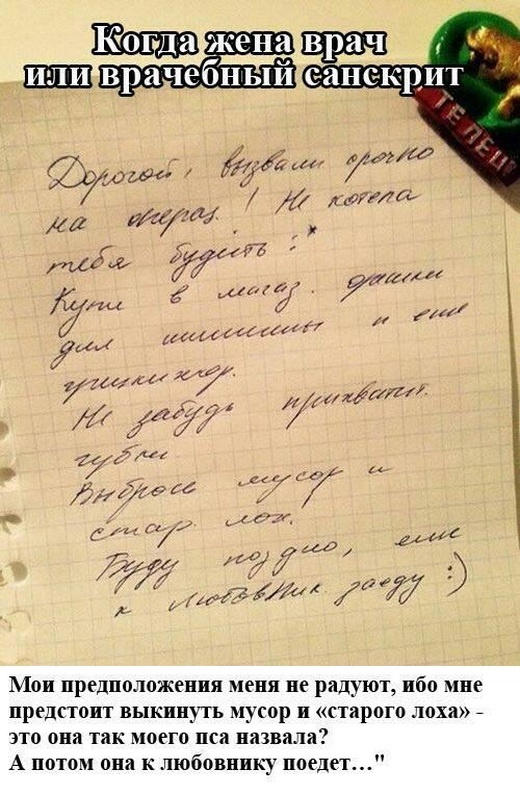 Когда жена врач
или врачебный санскрит
ТЕЛЕЦ
Дорогой, вызвали срочно
на операц. ! Не хотела
тебя будить :*
Купи в магаз.
для и еще
Не забудь прихватит.
губки
Выброси мусор и
стар. лох.
Буду поздно, или
к любовник заеду :)
Мои предположения меня не радуют, ибо мне
предстоит выкинуть мусор и «старого лоха» -
это она так моего пса назвала?
А потом она к любовнику поедет…"